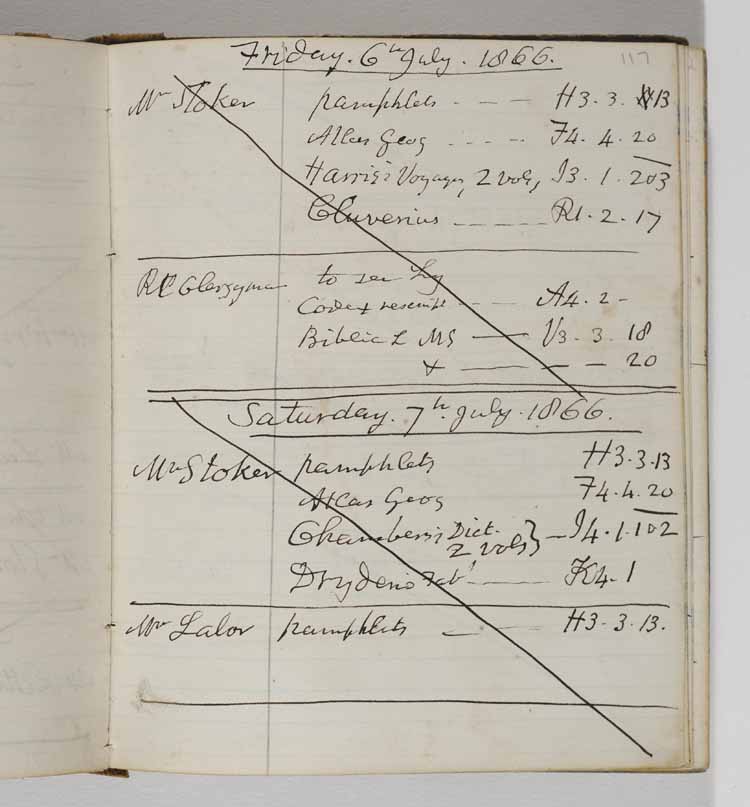 117
Friday. 6th July. 1866.
Mr Stoker pamphlets - - - H3. 3. 13
Atlas Geog - - - - F4. 4. 20
Harris's Voyages, 2 vols, I3. 1. 203
Cluverius - - - R1. 2. 17
RC Clergyman to see Ly
Codex rescript - - - A4. 2 -
Biblia L MS - V3. 3. 18
+ - - - 20
Saturday. 7th July. 1866.
Mr Stoker pamphlets H3. 3. 13
Atlas Geog F4. 4. 20
Chambers's Dict. 2 vols } - I4. 1. 102
Drydens Fab - - K4. 1
Mr Lalor pamphlets - - H3. 3. 13.